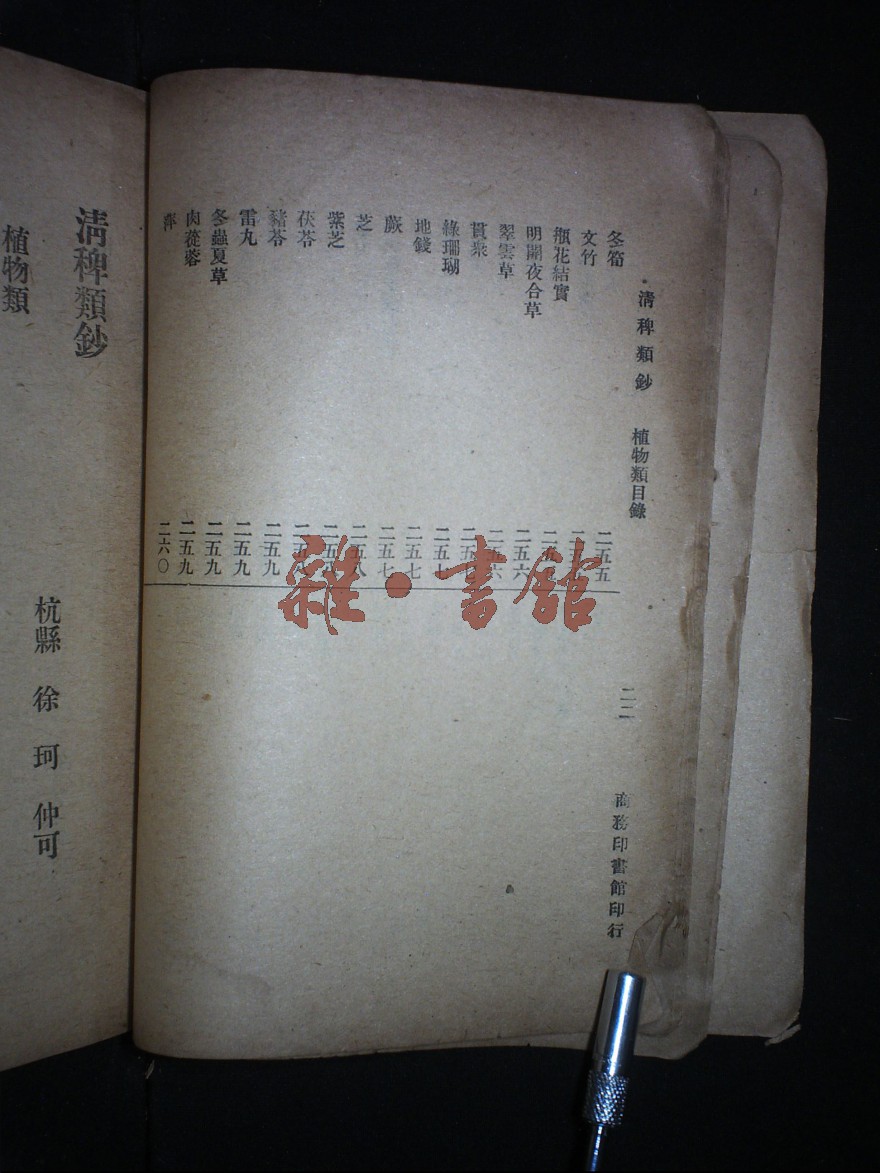 清稗類鈔　植物類目錄　二二　商務印書館印行
冬筍　二五五
文竹
瓶花結實
明開夜合草　二五六
翠雲草　二五六
貫衆
綠珊瑚　二五七
地錢　二五七
蕨　二五七
芝　二五八
紫芝　二五八
茯苓　二五八
豬苓　二五九
雷丸　二五九
冬蟲夏草　二五九
肉蓯蓉　二五九
萍　二六〇
清稗類鈔
杭縣　徐　珂　仲可
植物類
雜·書館